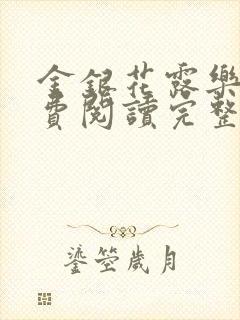 金銀花露樂
費閱讀完整
鎏箜歲月